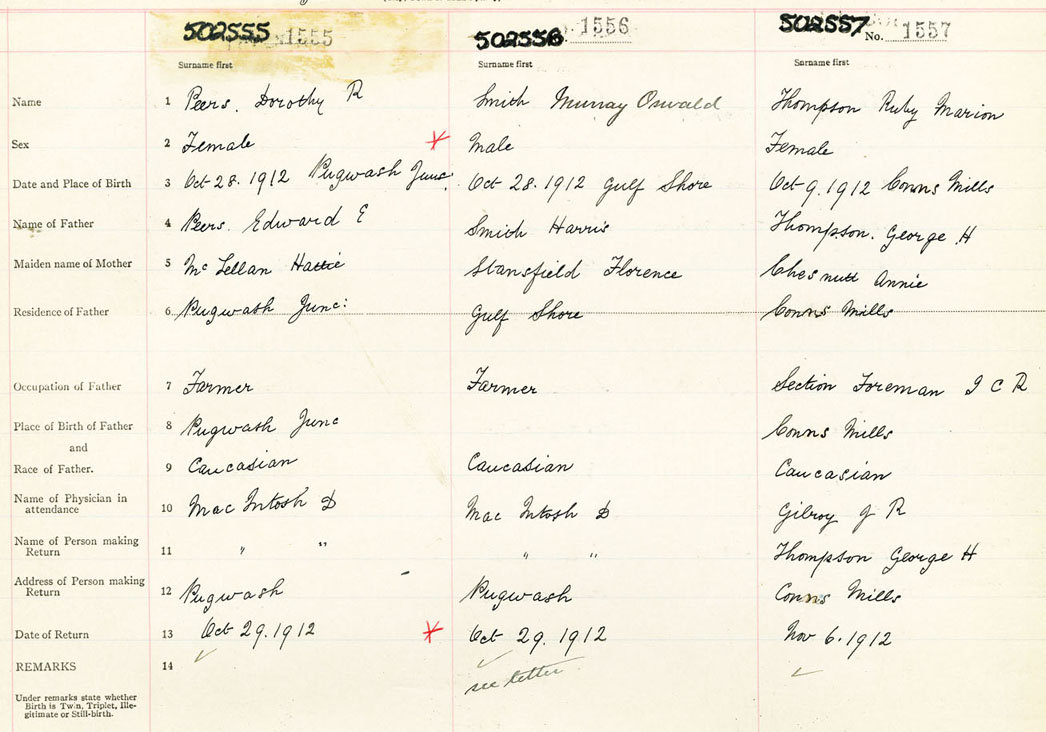 502555 1555 502556 1556 502557 No. 1557
Surname first Surname first Surname first
Name 1 Peers. Dorothy R Smith Murray Oswald Thompson Ruby Marion
Sex 2 Female Male Female
Date and Place of Birth 3 Oct 28. 1912 Pugwash Junc. Oct 28. 1912 Gulf Shore Oct 9. 1912 Conns Mills
Name of Father 4 Peers. Edward E Smith Harris Thompson. George H
Maiden name of Mother 5 McLellan Hattie Stansfield Florence Chesnutt Annie
Residence of Father 6 Pugwash Junc: Gulf Shore Conns Mills
Occupation of Father 7 Farmer Farmer Section Foreman I C R
Place of Birth of Father 8 Pugwash Junc Conns Mills
and
Race of Father. 9 Caucasian Caucasian Caucasian
Name of Physician in
attendance 10 MacIntosh D MacIntosh D Gilroy J R
Name of Person making
Return 11 " " " " Thompson George H
Address of Person making
Return 12 Pugwash Pugwash Conns Mills
Date of Return 13 Oct 29. 1912 Oct 29. 1912 Nov 6. 1912
REMARKS 14 see letter
Under remarks state whether
Birth is Twin, Triplet, Ille-
gitimate or Still-birth.